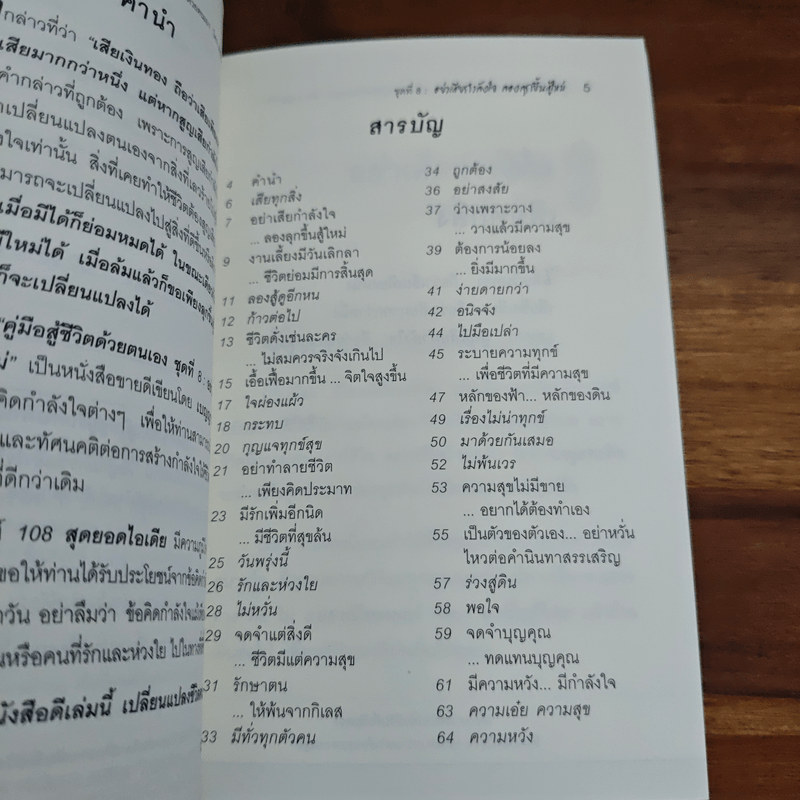 คำนำ
กล่าวที่ว่า "เสียเงินทอง ถือว่าเสีย
เสียมากกว่าหนึ่ง แต่หากสูญเสียกำลัง
คำกล่าวที่ถูกต้อง เพราะการสูญเสีย
เปลี่ยนแปลงตนเองจากสิ่งที่เลว
ใจเท่านั้น สิ่งที่เคยทำให้ชีวิตต้อง
มารถจะเปลี่ยนแปลงไปสู่สิ่งที่ดีขึ้น
เมื่อมีได้ก็ย่อมหมดได้ ในขณะเดียว
มีใหม่ได้ เมื่อล้มแล้วก็ขอเพียงลุกขึ้น
ก็จะเปลี่ยนแปลงได้
"คู่มือสู้ชีวิตด้วยตนเอง ชุดที่ 8 :
เป็นหนังสือขายดีเขียนโดย
คิดกำลังใจต่างๆ เพื่อให้ท่านสามารถ
และทัศนคติต่อการสร้างกำลังใจให้
ที่ดีกว่าเดิม
108 สุดยอดไอเดีย มีความภูมิ
ขอให้ท่านได้รับประโยชน์จากข้อคิด
วัน อย่าลืมว่า ข้อคิดกำลังใจ
นหรือคนที่รักและห่วงใย ไปในทางที่
นังสือดีเล่มนี้ เปลี่ยนแปลงชีวิต
ชุดที่ 8 : อย่าเสียกำลังใจ ลองลุกขึ้นสู้ใหม่ 5
สารบัญ
4 คำนำ
6 เสียทุกสิ่ง
7 อย่าเสียกำลังใจ
... ลองลุกขึ้นสู้ใหม่
9 งานเลี้ยงมีวันเลิกลา
... ชีวิตย่อมมีการสิ้นสุด
11 ลองสู้ดูอีกหน
12 ก้าวต่อไป
13 ชีวิตดั่งเช่นละคร
... ไม่สมควรจริงจังเกินไป
15 เอื้อเฟื้อมากขึ้น ... จิตใจสูงขึ้น
17 ใจผ่องแผ้ว
18 กระทบ
20 กุญแจทุกข์สุข
21 อย่าทำลายชีวิต
... เพียงคิดประมาท
23 มีรักเพิ่มอีกนิด
... มีชีวิตที่สุขล้น
25 วันพรุ่งนี้
26 รักและห่วงใย
28 ไม่หวั่น
29 จดจำแต่สิ่งดี
... ชีวิตมีแต่ความสุข
31 รักษาตน
... ให้พ้นจากกิเลส
33 มีทั่วทุกตัวคน
34 ถูกต้อง
36 อย่าสงสัย
37 ว่างเพราะวาง
... วางแล้วมีความสุข
39 ต้องการน้อยลง
... ยิ่งมีมากขึ้น
41 ง่ายดายกว่า
42 อนิจจัง
44 ไปมือเปล่า
45 ระบายความทุกข์
... เพื่อชีวิตที่มีความสุข
47 หลักของฟ้า... หลักของดิน
49 เรื่องไม่น่าทุกข์
50 มาด้วยกันเสมอ
52 ไม่พ้นเวร
53 ความสุขไม่มีขาย
... อยากได้ต้องทำเอง
55 เป็นตัวของตัวเอง... อย่าหวั่น
ไหวต่อคำนินทาสรรเสริญ
57 ร่วงสู่ดิน
58 พอใจ
59 จดจำบุญคุณ
... ทดแทนบุญคุณ
61 มีความหวัง... มีกำลังใจ
63 ความเอ๋ย ความสุข
64 ความหวัง